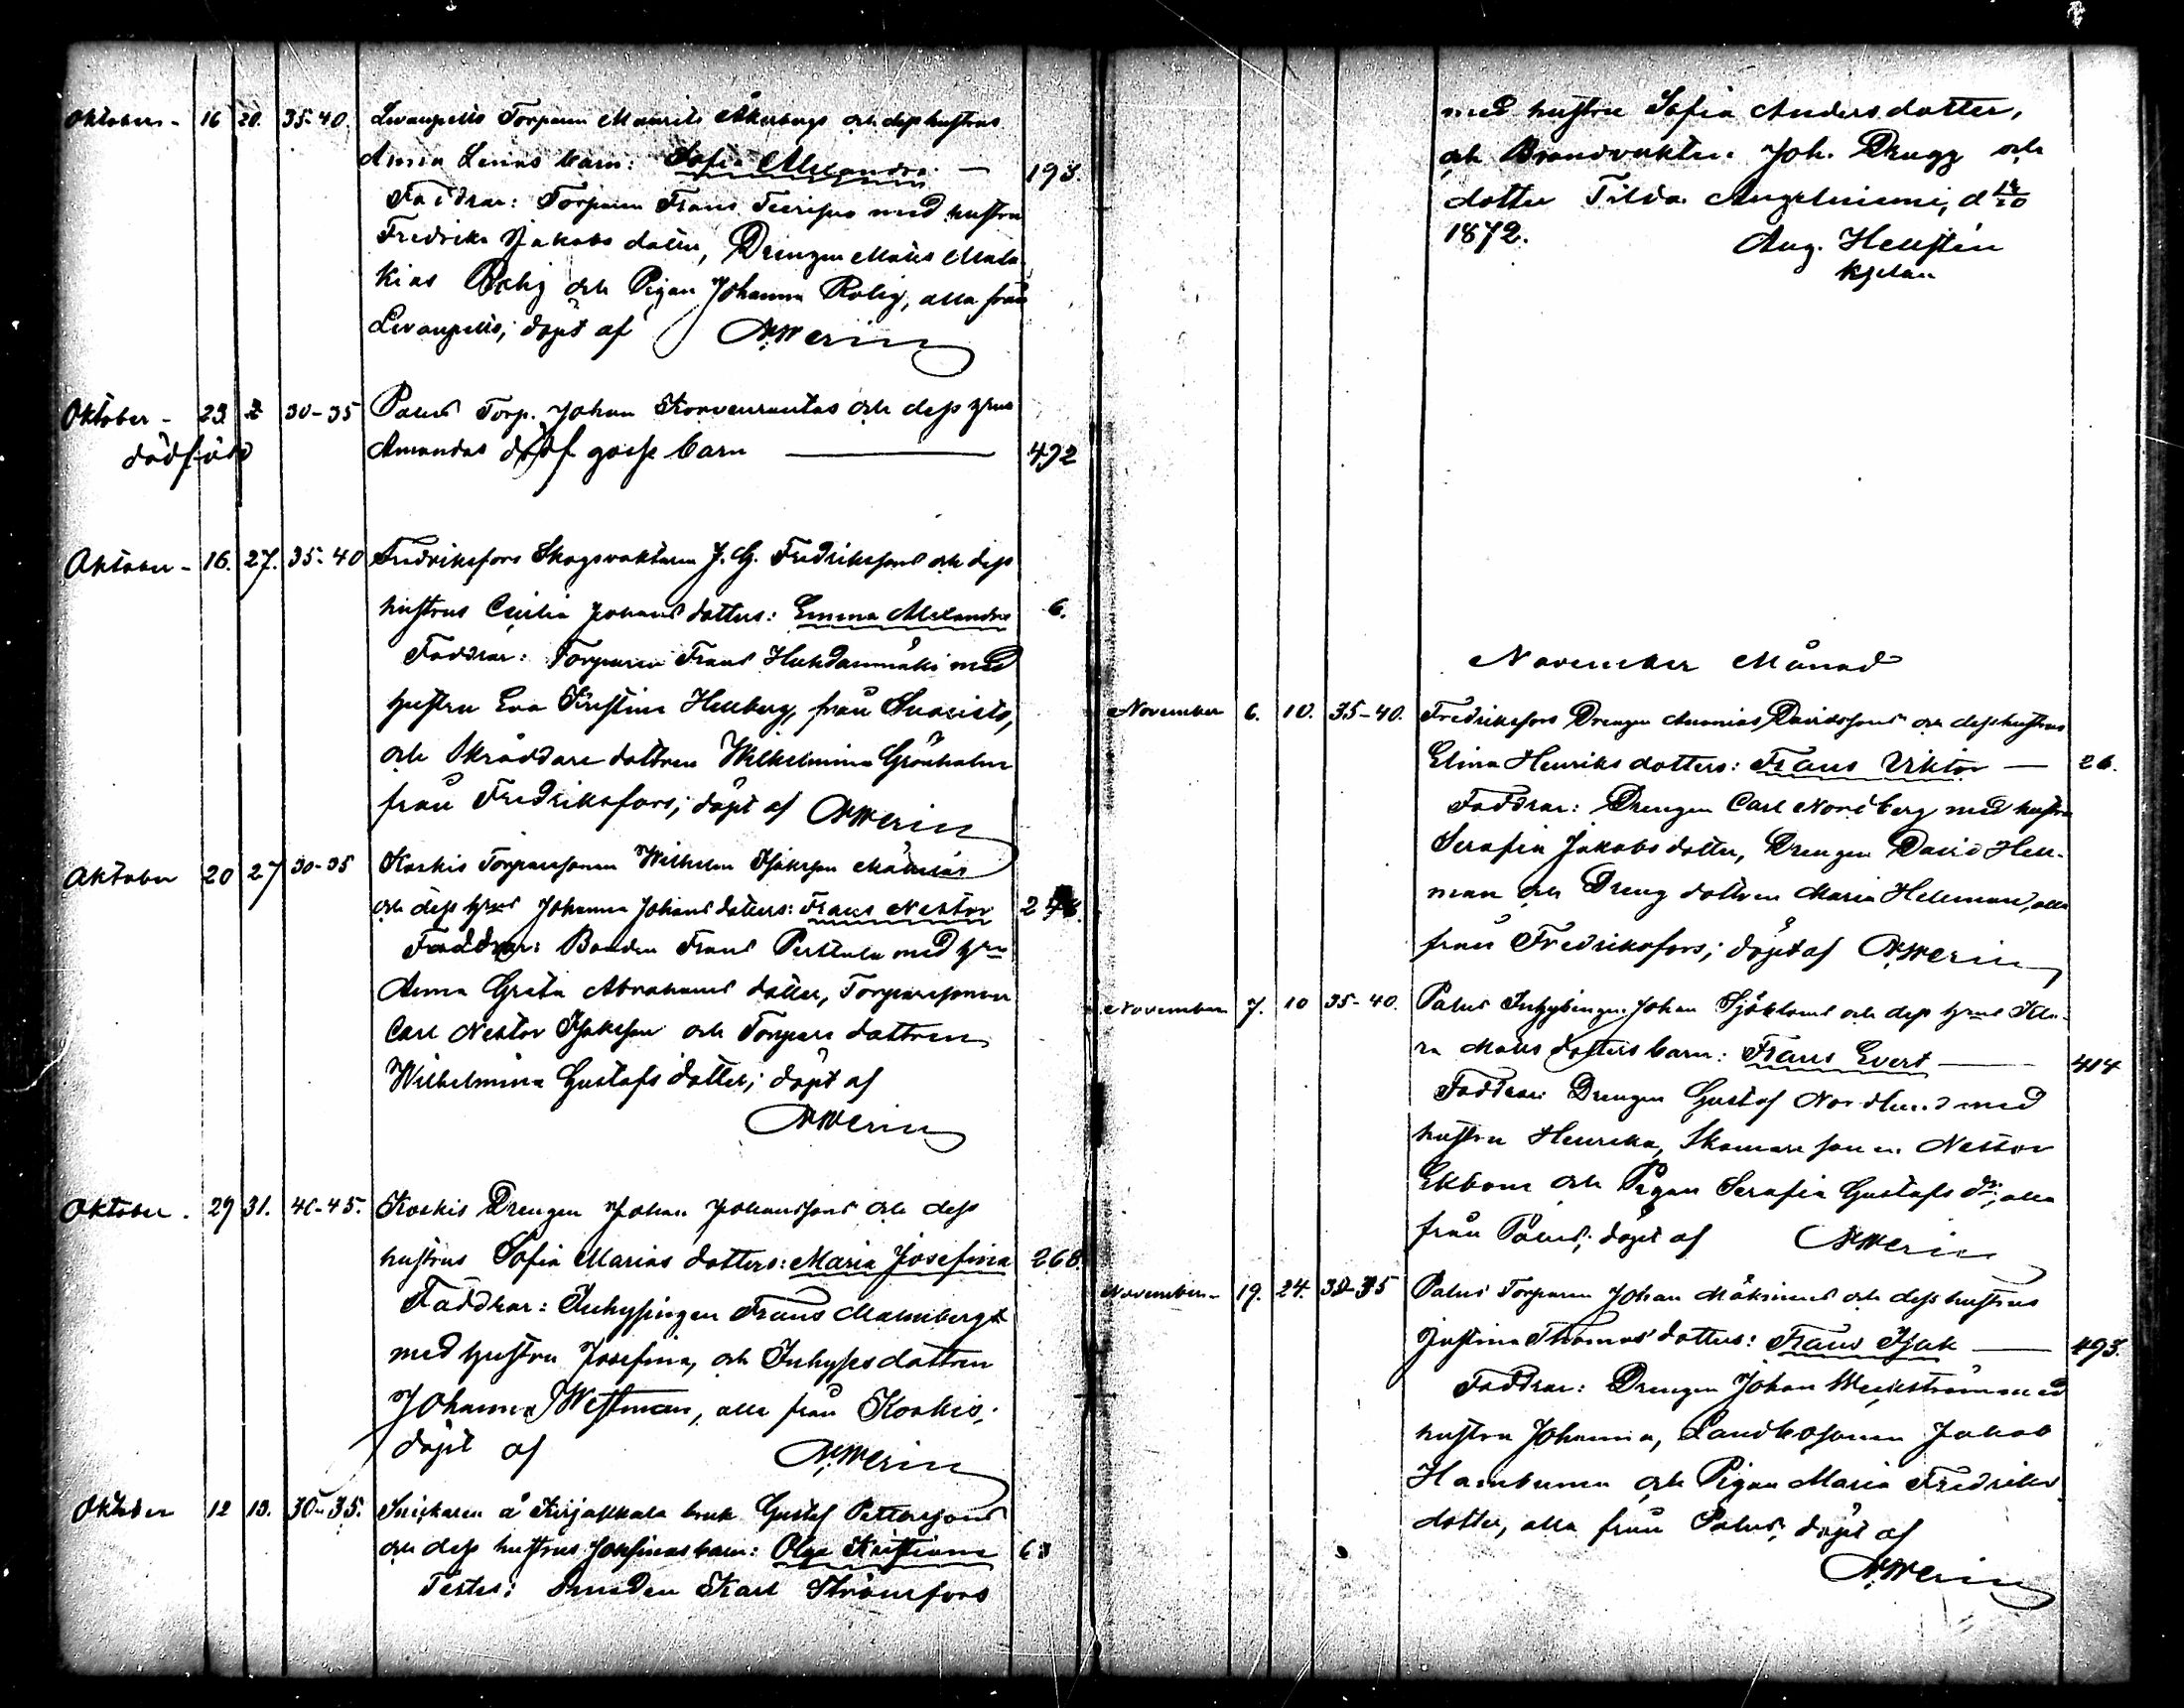 Oktober - 16 20. 35-40. Torparen Maurits Åkerbergs och dess hustrus
Anna Lenas barn: Sofia Alexandra — 193.
Faddrar: Torparen Frans med hustru
Fredrika Jakobs dotter, Drengen Matts Mala-
kias Rolig och Pigan Johanna Rolig, alla från
döpt af
Oktober - 23 30-35 Palus Torp. Johan Korvenrantas och dess hrus
dödfödd Amandas dödf gosse barn — 492
Oktober - 16. 27. 35-40 Fredriksfors Skogsvaktaren J. G. Fredrikssons och dess
hustrus Cecilia Johans dotters: Emma Alexandra 6.
Faddrar: Torparen Frans Huhdanmäki med
hustru Eva Kristina Hellberg, från
och Skräddare dottren Wilhelmina Grönholm
från Fredriksfors; döpt af
Oktober 20 27 30-35 Koskis Torparesonen Wilhelm Isaksson
och dess hrus Johanna Johans dotters: Frans Nestor
Faddrar: Bonden Frans Perttula med hru
Anna Greta Abrahams dotter, Torparesonen
Carl Nestor Isaksson och Torpare dottren
Wilhelmina Gustafs dotter; döpt af
Oktober - 29 31. 40-45. Koskis Drengen Johan Johanssons och dess
hustrus Sofia Marias dotters: Maria Josefina 268.
Faddrar: Inhysingen Frans Malmberg
med hustru Josefina, och Inhyses dottren
Johanna Westman, alla från Koskis;
döpt af
Oktober 12 13. 30-35. Snickaren å Kirjakkala bruk Gustaf Petterssons
och dess hustrus Josefinas barn: Olga Kristiana 63
Testes: Smeden Karl Strömfors
med hustru Sofia Anders dotter,
och Brandvakten Joh. Drugg och
dotter Tilda Angelniemi, d
1872. Aug. Hellstén
Kyrkan
November Månad
November 6. 10. 35-40. Fredriksfors Drengen Ananias Davidssons och dess hustrus
Elina Henriks dotters: Frans Viktor — 26.
Faddrar: Drengen Carl Nordberg med hustru
Serafia Jakobs dotter, Drengen David Hell-
man och Dreng dottren Maria Hellman, alla
från Fredriksfors; döpt af
November 7. 10 35-40. Palus Inhysingen Johan Sjöbloms och dess hrus
Matts dotters barn: Frans Evert — 414
Faddrar: Drengen Gustaf Nordlund med
hustru Henrika, Skomare sonen Nestor
Ekbom och Pigan Serafia Gustafs dr; alla
från Palus; döpt af
November - 19. 24. 30-35 Palus Torparen Johan Mäkinens och dess hustrus
Justina Thomas dotters: Frans Isak — 493.
Faddrar: Drengen Johan Weckström med
hustru Johanna, Landbosonen Jakob
och Pigan Maria Fredriks
dotter, alla från Palus, döpt af